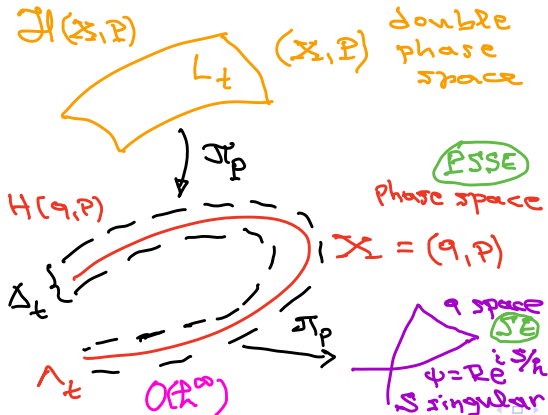 ℋ(𝕏,P)
L_t
(𝕏,P)
double
phase
space
π_p
PSSE
H(q,p)
phase space
𝕏 = (q,p)
Δ_t
π_p
q space
SE
ψ=Re^{iS/ħ}
S singular
Λ_t
O(ħ^∞)